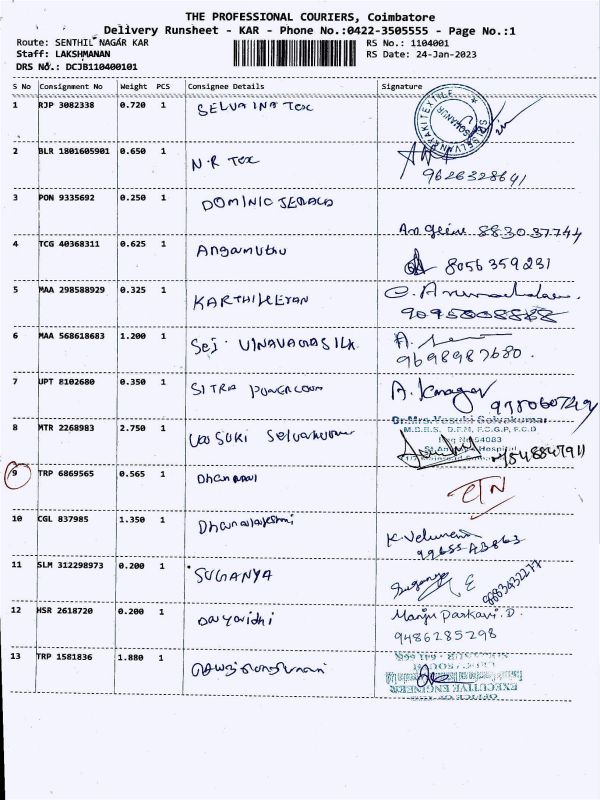 THE PROFESSIONAL COURIERS, Coimbatore
Delivery Runsheet - KAR - Phone No.:0422-3505555 - Page No.:1
Route: SENTHIL NAGAR KAR
RS No.: 1104001
Staff: LAKSHMANAN
RS Date: 24-Jan-2023
DRS No.: DCJB110400101
S No Consignment No Weight PCS Consignee Details Signature
1 RJP 3082338 0.720 1 SELVA INB Tex
2 BLR 1801605901 0.650 1 N.R Tex
9626328641
3 PON 9335692 0.250 1 DOMINIC JERALD
4 TCG 40368311 0.625 1 Angamuthu 8056359231
5 MAA 298588929 0.325 1 KARTHIKEYAN
6 MAA 568618683 1.200 1 Sei VINAYAGA SILK
9698987680.
7 UPT 8102680 0.350 1 SITRA POWERLOOM
8 MTR 2268983 2.750 1 Vasuki Selvakumar
Dr.Mrs.Vasuki Selvakumar
M.B.B.S., D.F.M, F.C.G.P, F.C.D
Reg No 54083
7548847911
9 TRP 6869565 0.565 1
RTN
10 CGL 837985 1.350 1 Dhanalakshmi
11 SLM 312298973 0.200 1 SUGANYA Suganya
12 HSR 2618720 0.200 1 Manju Parkavi.D.
9486285298
13 TRP 1581836 1.880 1
EXECUTIVE ENGINEER